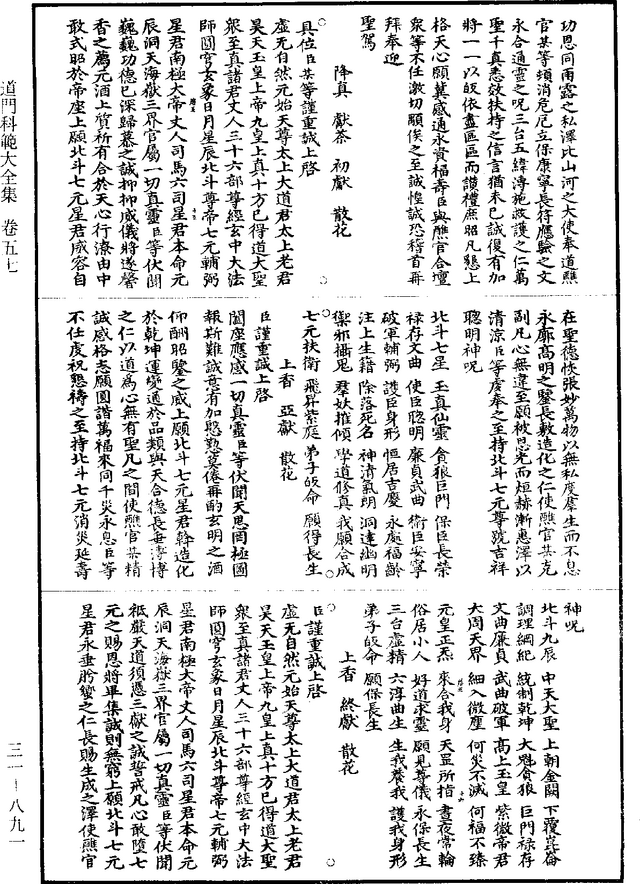 道門科範大全集 卷五七
三一-八九一
功恩同雨露之私澤比山河之大使奉道醮
官某等頃消危厄立保康寧長符應驗之文
永合通靈之呪三台五緯溥施救護之仁萬
聖千真悉效扶持之信言猶未已誠復有加
將一一以皈依盡區區而讚禮庶昭凡懇上
格天心願冀感通永資福壽臣與醮官合壇
衆等不任激切顒俟之至誠惶誠恐稽首再
拜奉迎
聖駕
降真 獻茶 初獻 散花
具位臣某等謹重誠上啓
虛无自然元始天尊太上大道君太上老君
昊天玉皇上帝九皇上真十方已得道大聖
衆至真諸君丈人三十六部尊經玄中大法
師圓穹玄象日月星辰北斗尊帝七元輔弼
星君南極大帝丈人司馬六司星君本命元
辰洞天海嶽三界官屬一切真靈臣等伏聞
巍巍功德已深歸慕之誠抑抑威儀將遂馨
香之薦元酒上質祈有合於天心行潦由中
敢式昭於帝座上願北斗七元星君威容自
在聖德恢張妙萬物以無私度羣生而不息
永廓高明之鑒長敷造化之仁使醮官某克
副凡心無違至願被恩光而烜赫漸惠澤以
清涼臣等虔奉之至持北斗七元尊號吉祥
聰明神呪
北斗七星 玉真仙靈 貪狼巨門 保臣長榮
祿存文曲 使臣聰明 廉貞武曲 衛臣安寧
破軍輔弼 護臣身形 恒居吉慶 永處福齡
注上生籍 除落死名 神清氣明 洞達幽明
禦邪攝鬼 羣妖摧傾 學道修真 我願合成
七元扶衛 飛昇紫庭 弟子皈命 願得長生
上香 亞獻 散花
臣謹重誠上啓
閶座應感一切真靈臣等伏聞天恩罔極國
報斯難誠意有加慇懃莫倦再酌玄明之酒
仰酬昭鑒之威上願北斗七元星君斡造化
於乾坤運變通於品類與天合德長垂溥博
之仁以道為心無有聖凡之間使醮官某精
誠感格志願圓諧萬福來同千災永息臣等
不任虔祝懇禱之至持北斗七元消災延壽
神呪
北斗九辰 中天大聖 上朝金闕 下覆崑崙
調理綱紀 統制乾坤 大魁貪狼 巨門祿存
文曲廉貞 武曲破軍 高上玉皇 紫微帝君
大周天界 細入微塵 何災不滅 何福不臻
元皇正炁 來合我身 天罡所指 晝夜常輪
俗居小人 好道求靈 願見尊儀 永保長生
三台虛精 六淳曲生 生我養我 護我身形
弟子皈命 願保長生
上香 終獻 散花
臣謹重誠上啓
虛无自然元始天尊太上大道君太上老君
昊天玉皇上帝九皇上真十方已得道大聖
衆至真諸君丈人三十六部尊經玄中大法
師圓穹玄象日月星辰北斗尊帝七元輔弼
星君南極大帝丈人司馬六司星君本命元
辰洞天海嶽三界官屬一切真靈臣等伏聞
祗嚴天道須憑三獻之誠誓戒凡心敢墮七
元之賜恩將畢集誠則無窮上願北斗七元
星君永垂肸蠁之仁長賜生成之澤使醮官